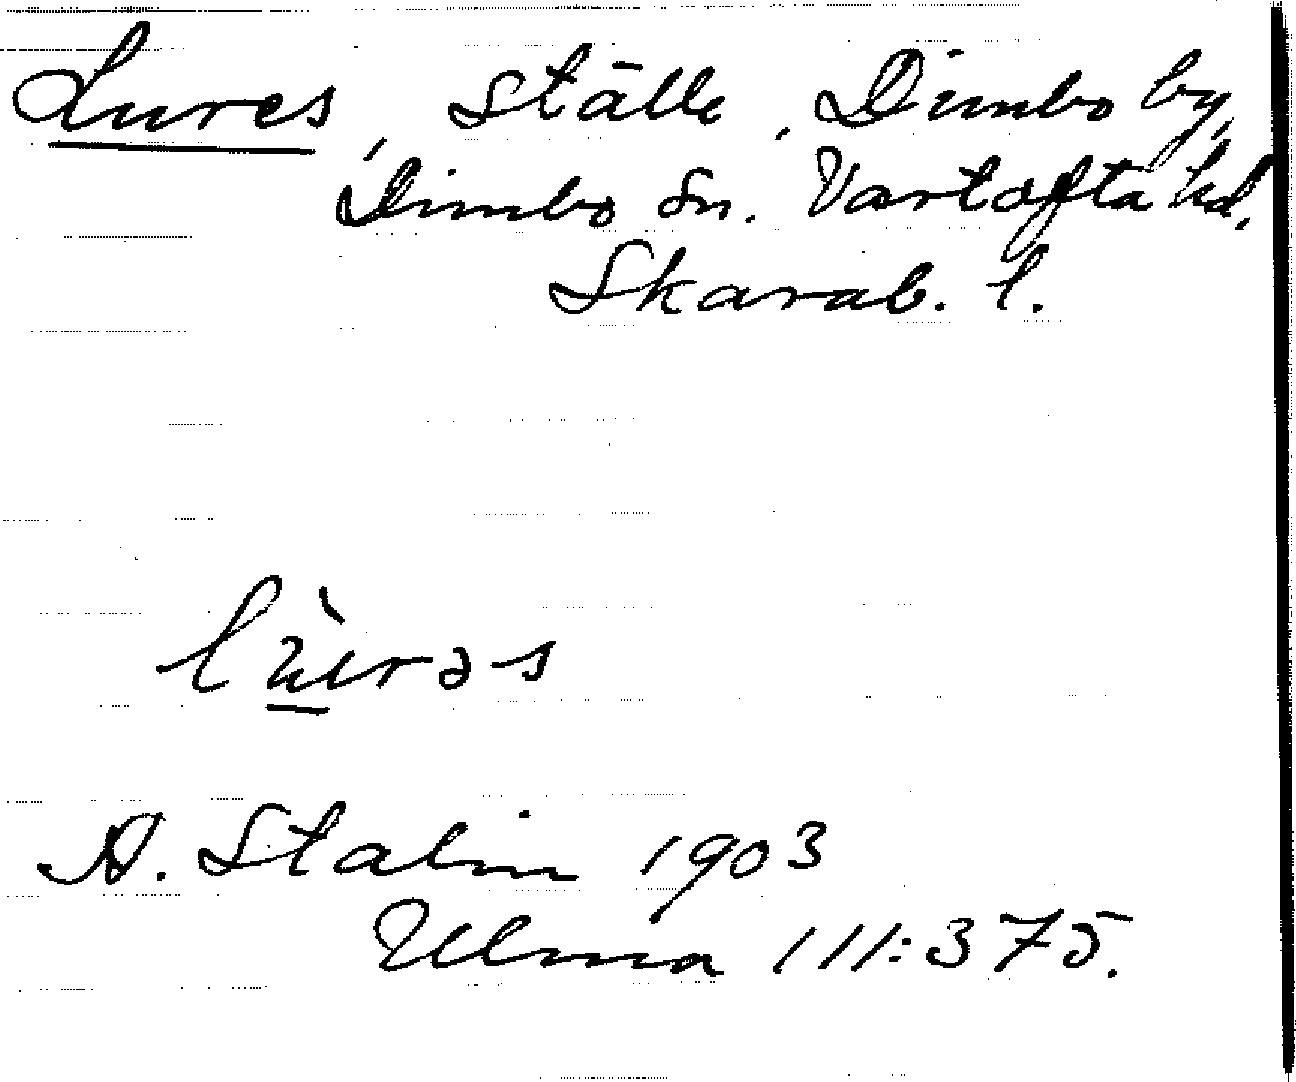 Lures, ställe, Dimbo by,
Dimbo sn. Vartofta hd.
Skarab. l.
lùrəs
A. Stalin 1903
Ulma 111:375.